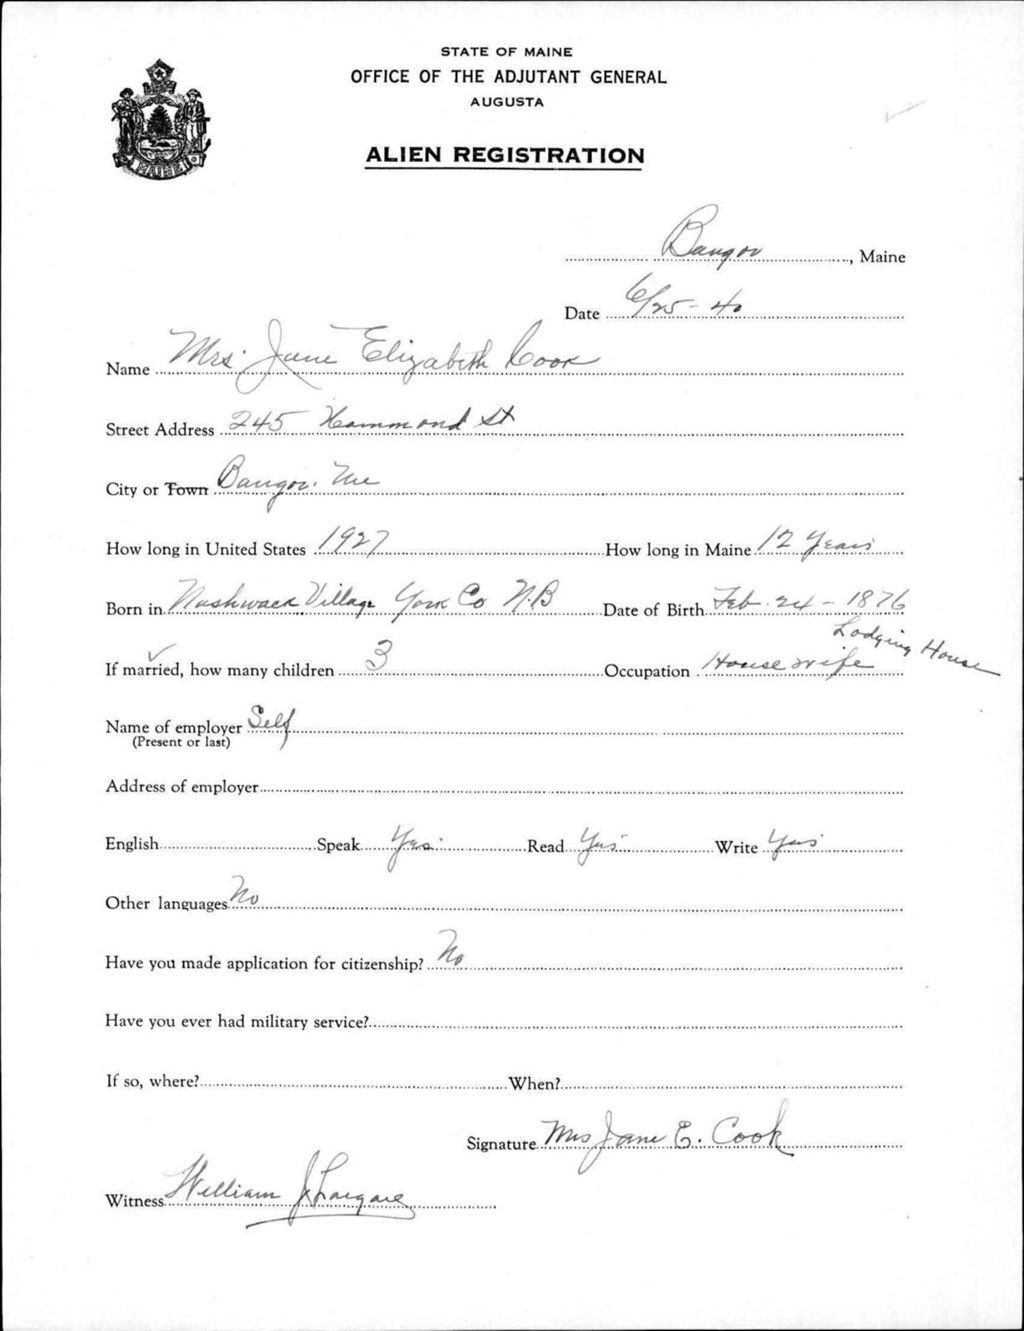 STATE OF MAINE
OFFICE OF THE ADJUTANT GENERAL
AUGUSTA
ALIEN REGISTRATION
MAINE
Bangor, Maine
Date 6/25-40
Name Mrs. Jane Elizabeth Cook
Street Address 245 Hammond St
City or Town Bangor. Me
How long in United States 1927 How long in Maine 12 Years
Born in Nashwack Village York Co N.B Date of Birth Feb. 24-1876
Lodging House
If married, how many children 3 Occupation Housewife
Name of employer Self
(Present or last)
Address of employer
English Speak Yes. Read Yes Write Yes
Other languages No
Have you made application for citizenship? No
Have you ever had military service?
If so, where? When?
Signature Mrs Jane E. Cook
Witness William J.